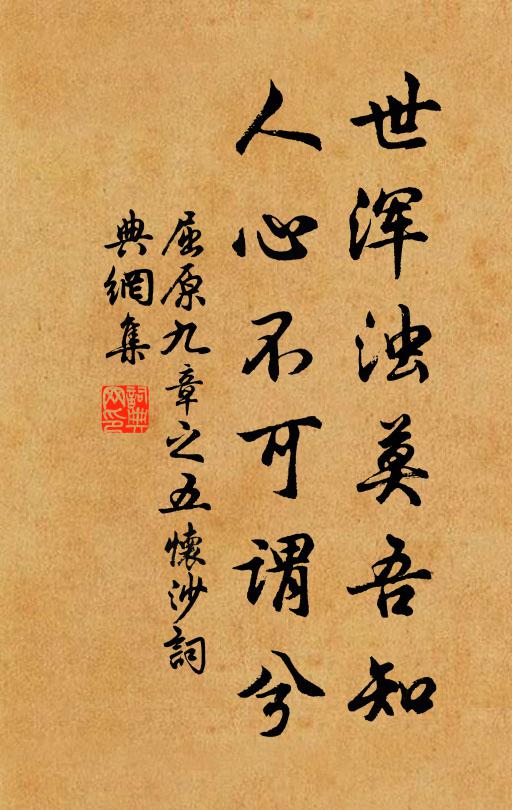 世浑浊莫吾知
人心不可谓兮
屈原九章之五懷沙詞
典網集
詞典網印